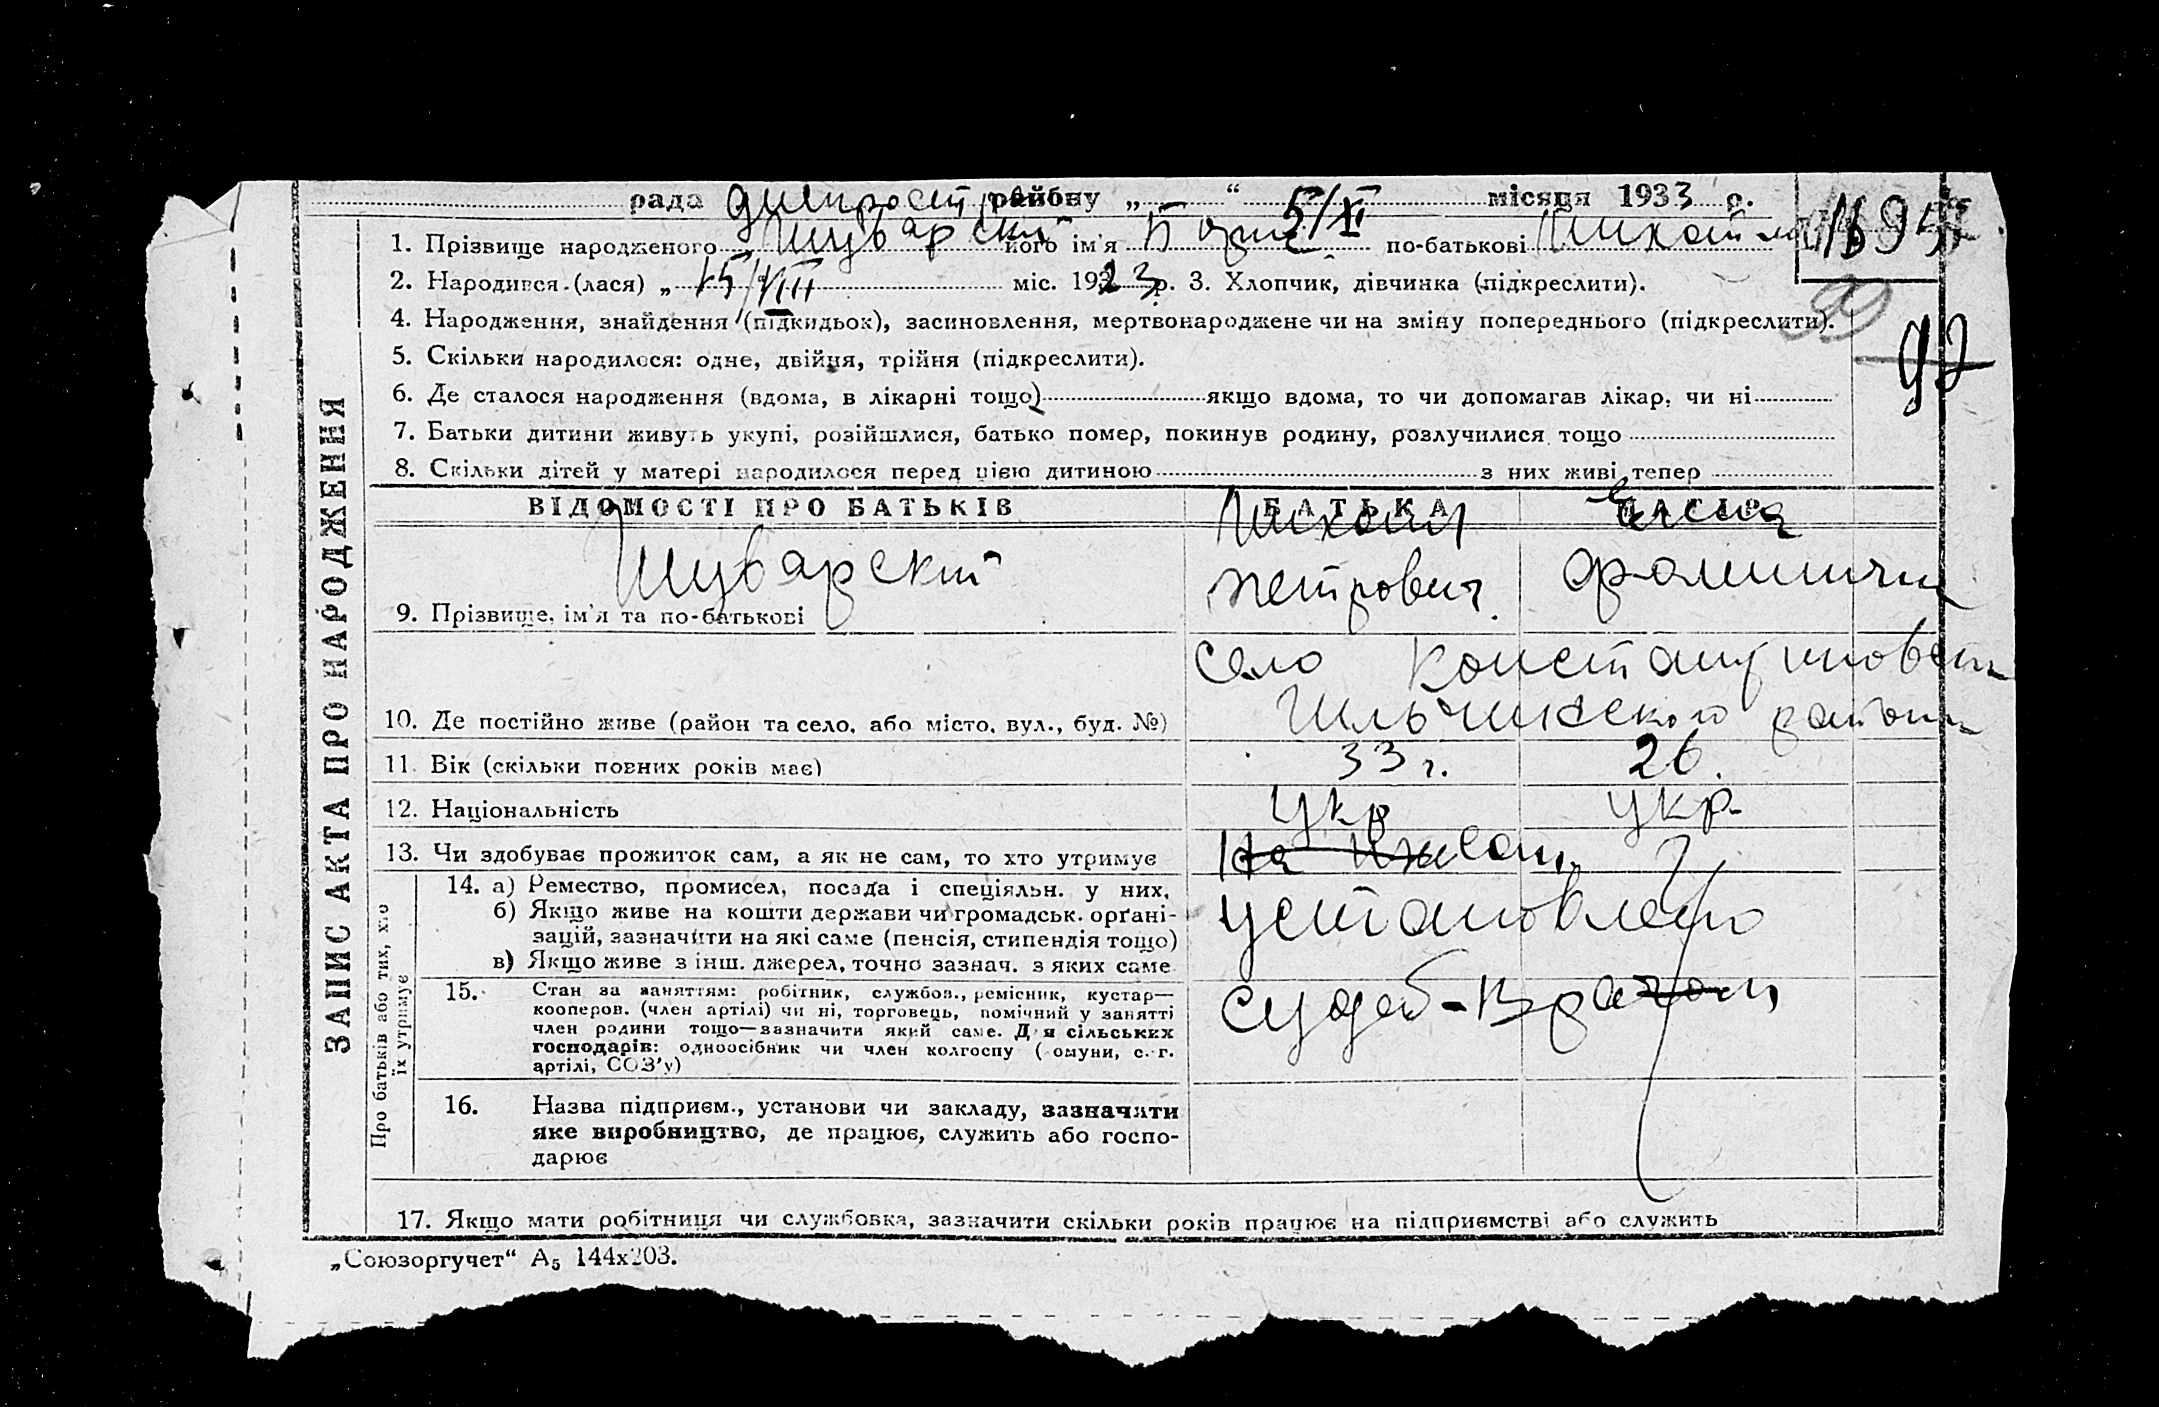 рада Днипрост району „ “ 5/XI місяця 1933 р.
1. Прізвище народженого Шуварский його ім'я по-батькові Михайл
2. Народився (лася) „ 15/VIII міс. 1923 р. 3. Хлопчик, дівчинка (підкреслити).
4. Народження, знайдення (підкидьок), засиновлення, мертвонароджене чи на зміну попереднього (підкреслити).
99
92
5. Скільки народилося: одне, двійня, трійня (підкреслити).
6. Де сталося народження (вдома, в лікарні тощо) якщо вдома, то чи допомагав лікар, чи ні
7. Батьки дитини живуть укупі, розійшлися, батько помер, покинув родину, розлучилися тощо
8. Скільки дітей у матері народилося перед цією дитиною з них живі тепер
ЗАПИС АКТА ПРО НАРОДЖЕННЯ
ВІДОМОСТІ ПРО БАТЬКІВ БАТЬКА
Шуварский Михаил
Петрович
9. Прізвище, ім'я та по-батькові
село Константиновки
10. Де постійно живе (район та село, або місто, вул., буд. №) района
11. Вік (скільки повних років має) 33 г. 26.
12. Національність укр укр
13. Чи здобуває прожиток сам, а як не сам, то хто утримує На сам
Про батьків або тих, хто їх утримує
14. а) Ремество, промисел, посада і спеціяльн. у них,
б) Якщо живе на кошти держави чи громадськ. орґані-
зацій, зазначити на які саме (пенсія, стипендія тощо)
в) Якщо живе з інш. джерел, точно зазнач. з яких саме
установлено
15. Стан за заняттям: робітник, службов., ремісник, кустар—
кооперов. (член артілі) чи ні, торговець, помічний у занятті
член родини тощо—зазначити який саме. Для сільських
господарів: одноосібник чи член колгоспу (комуни, с.-г.
артілі, СОЗ'у)
судеб-врачом
16. Назва підприєм., установи чи закладу, зазначити
яке виробництво, де працює, служить або госпо-
дарює
17. Якщо мати робітниця чи службовка, зазначити скільки років працює на підприємстві або служить
„Союзоргучет“ А5 144х203.